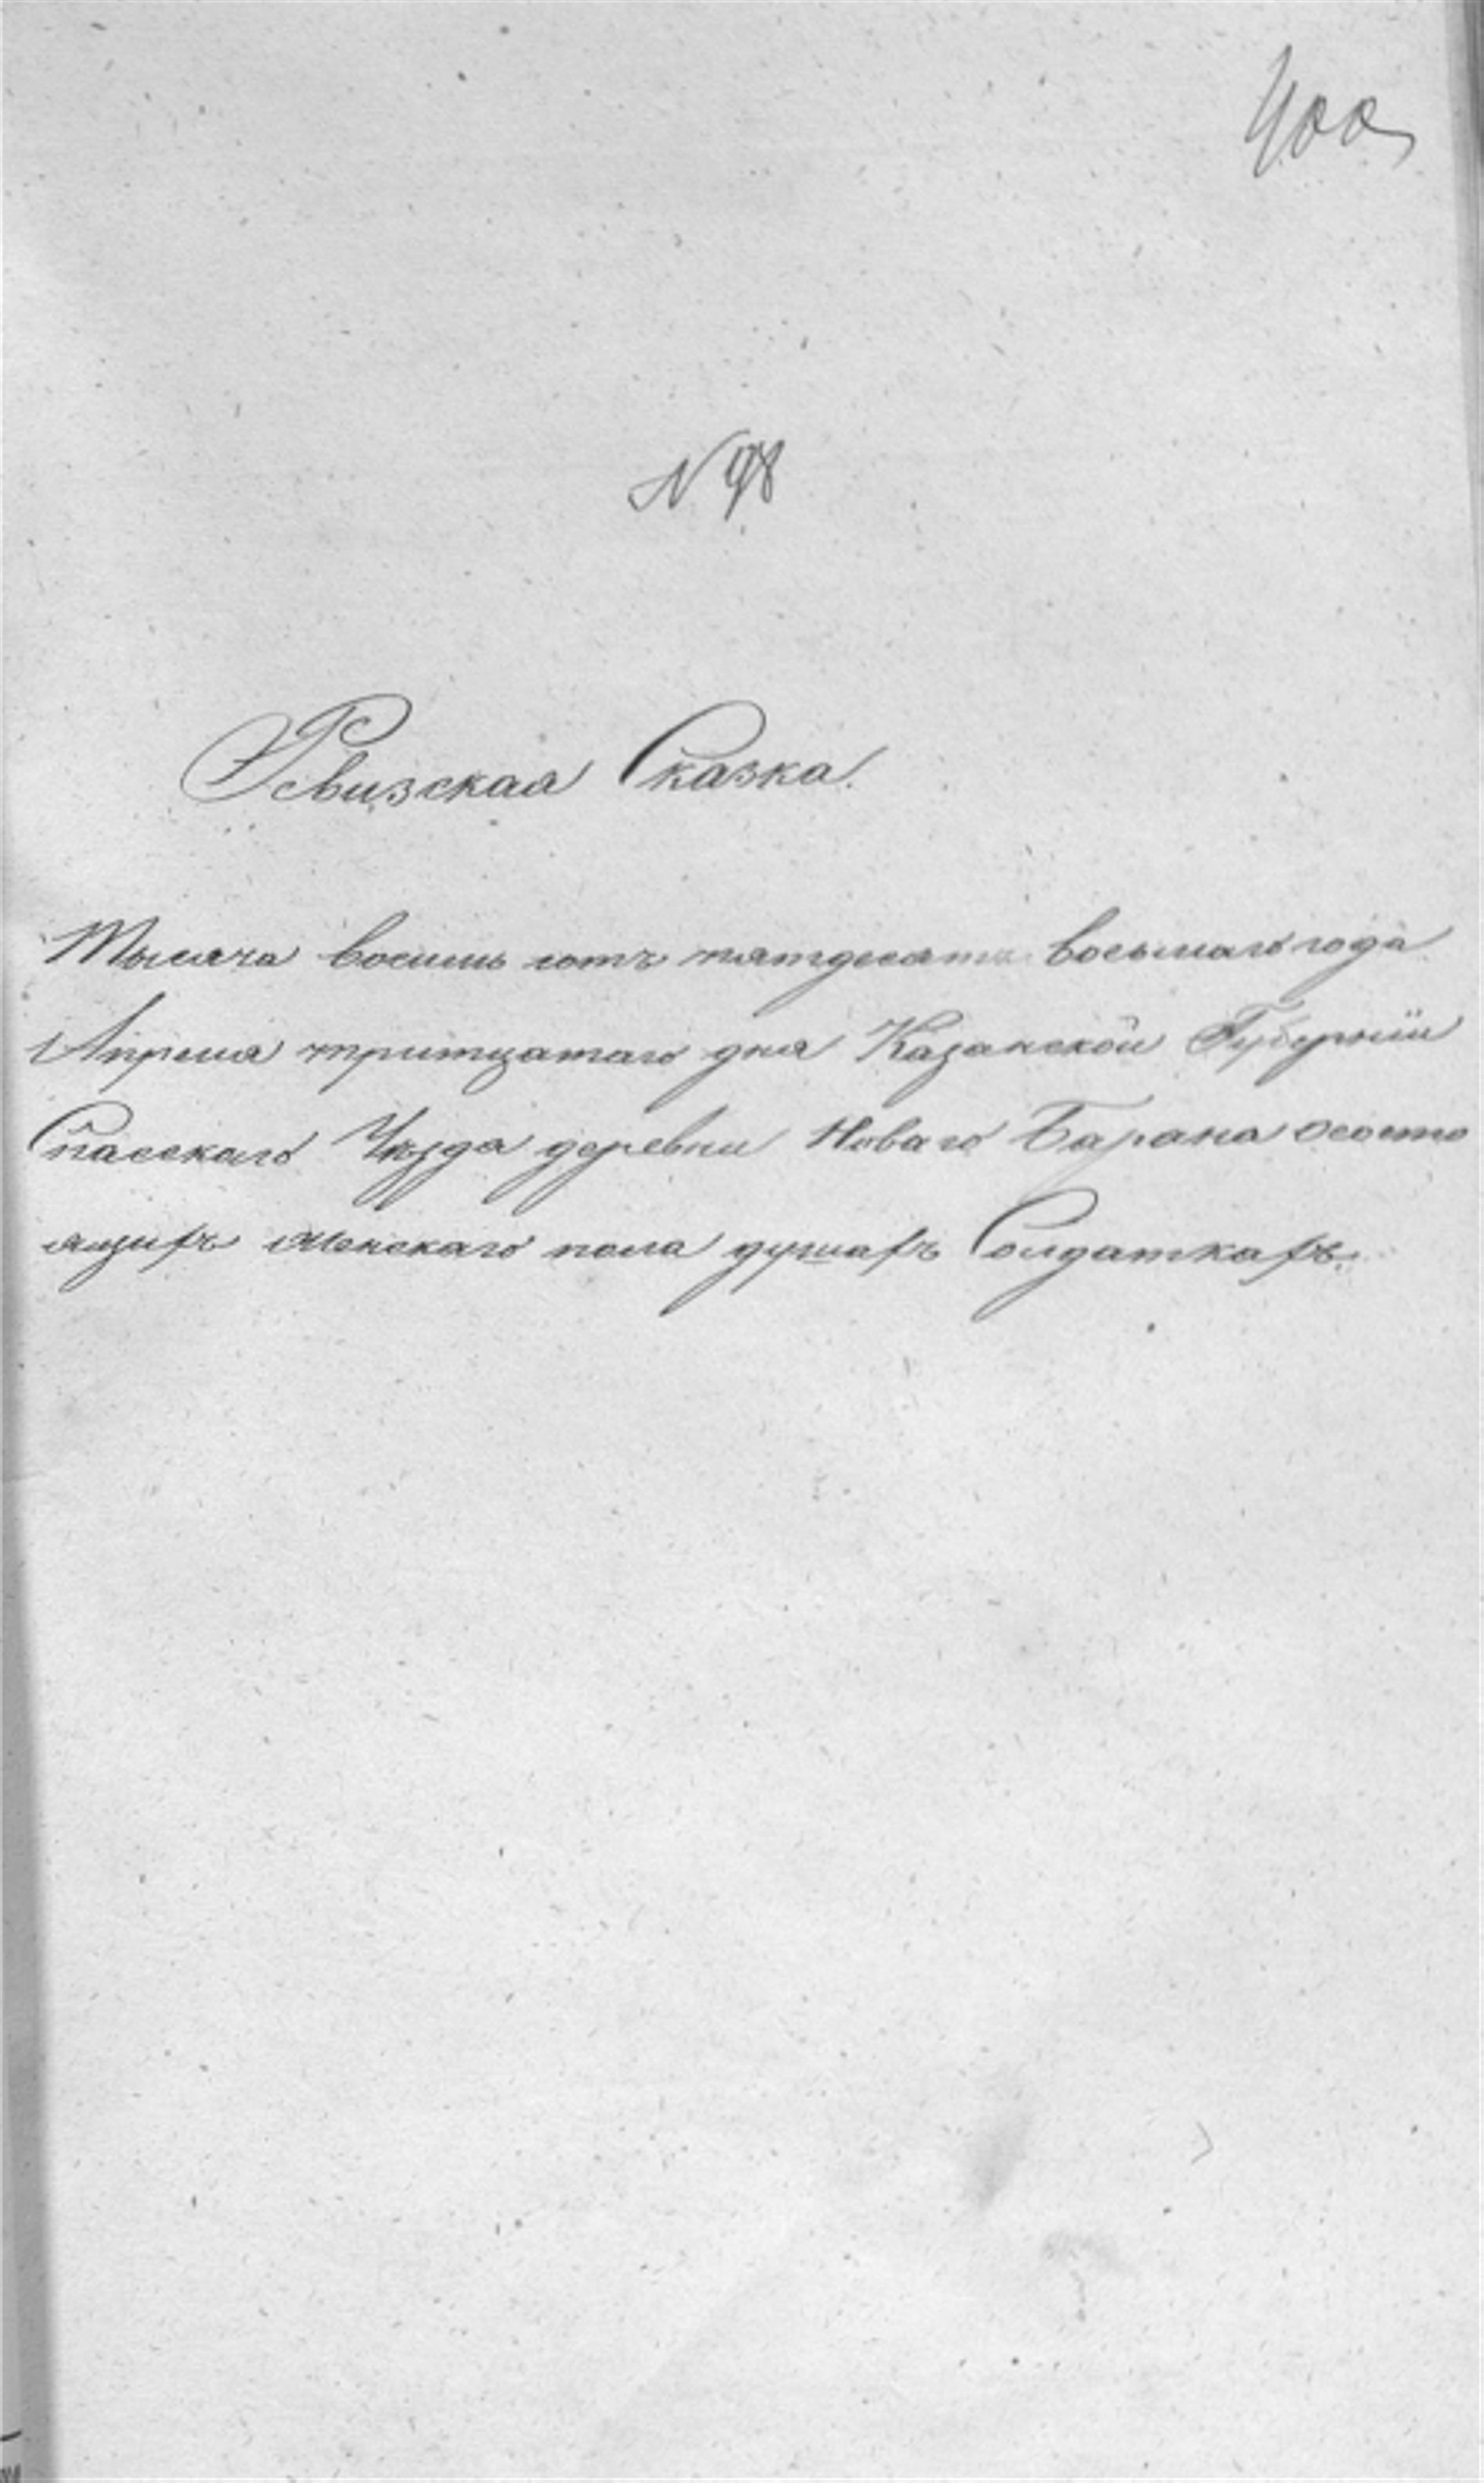 400
N 98
Ревизская Сказка.
Тысяча восемь сотъ пятдесятъ восьмаго года
Апреля тритцатаго дня Казанской Губерніи
Спасскаго Уѣзда деревни Новаго Барана осостο
ящихъ женскаго пола душахъ Солдаткахъ.